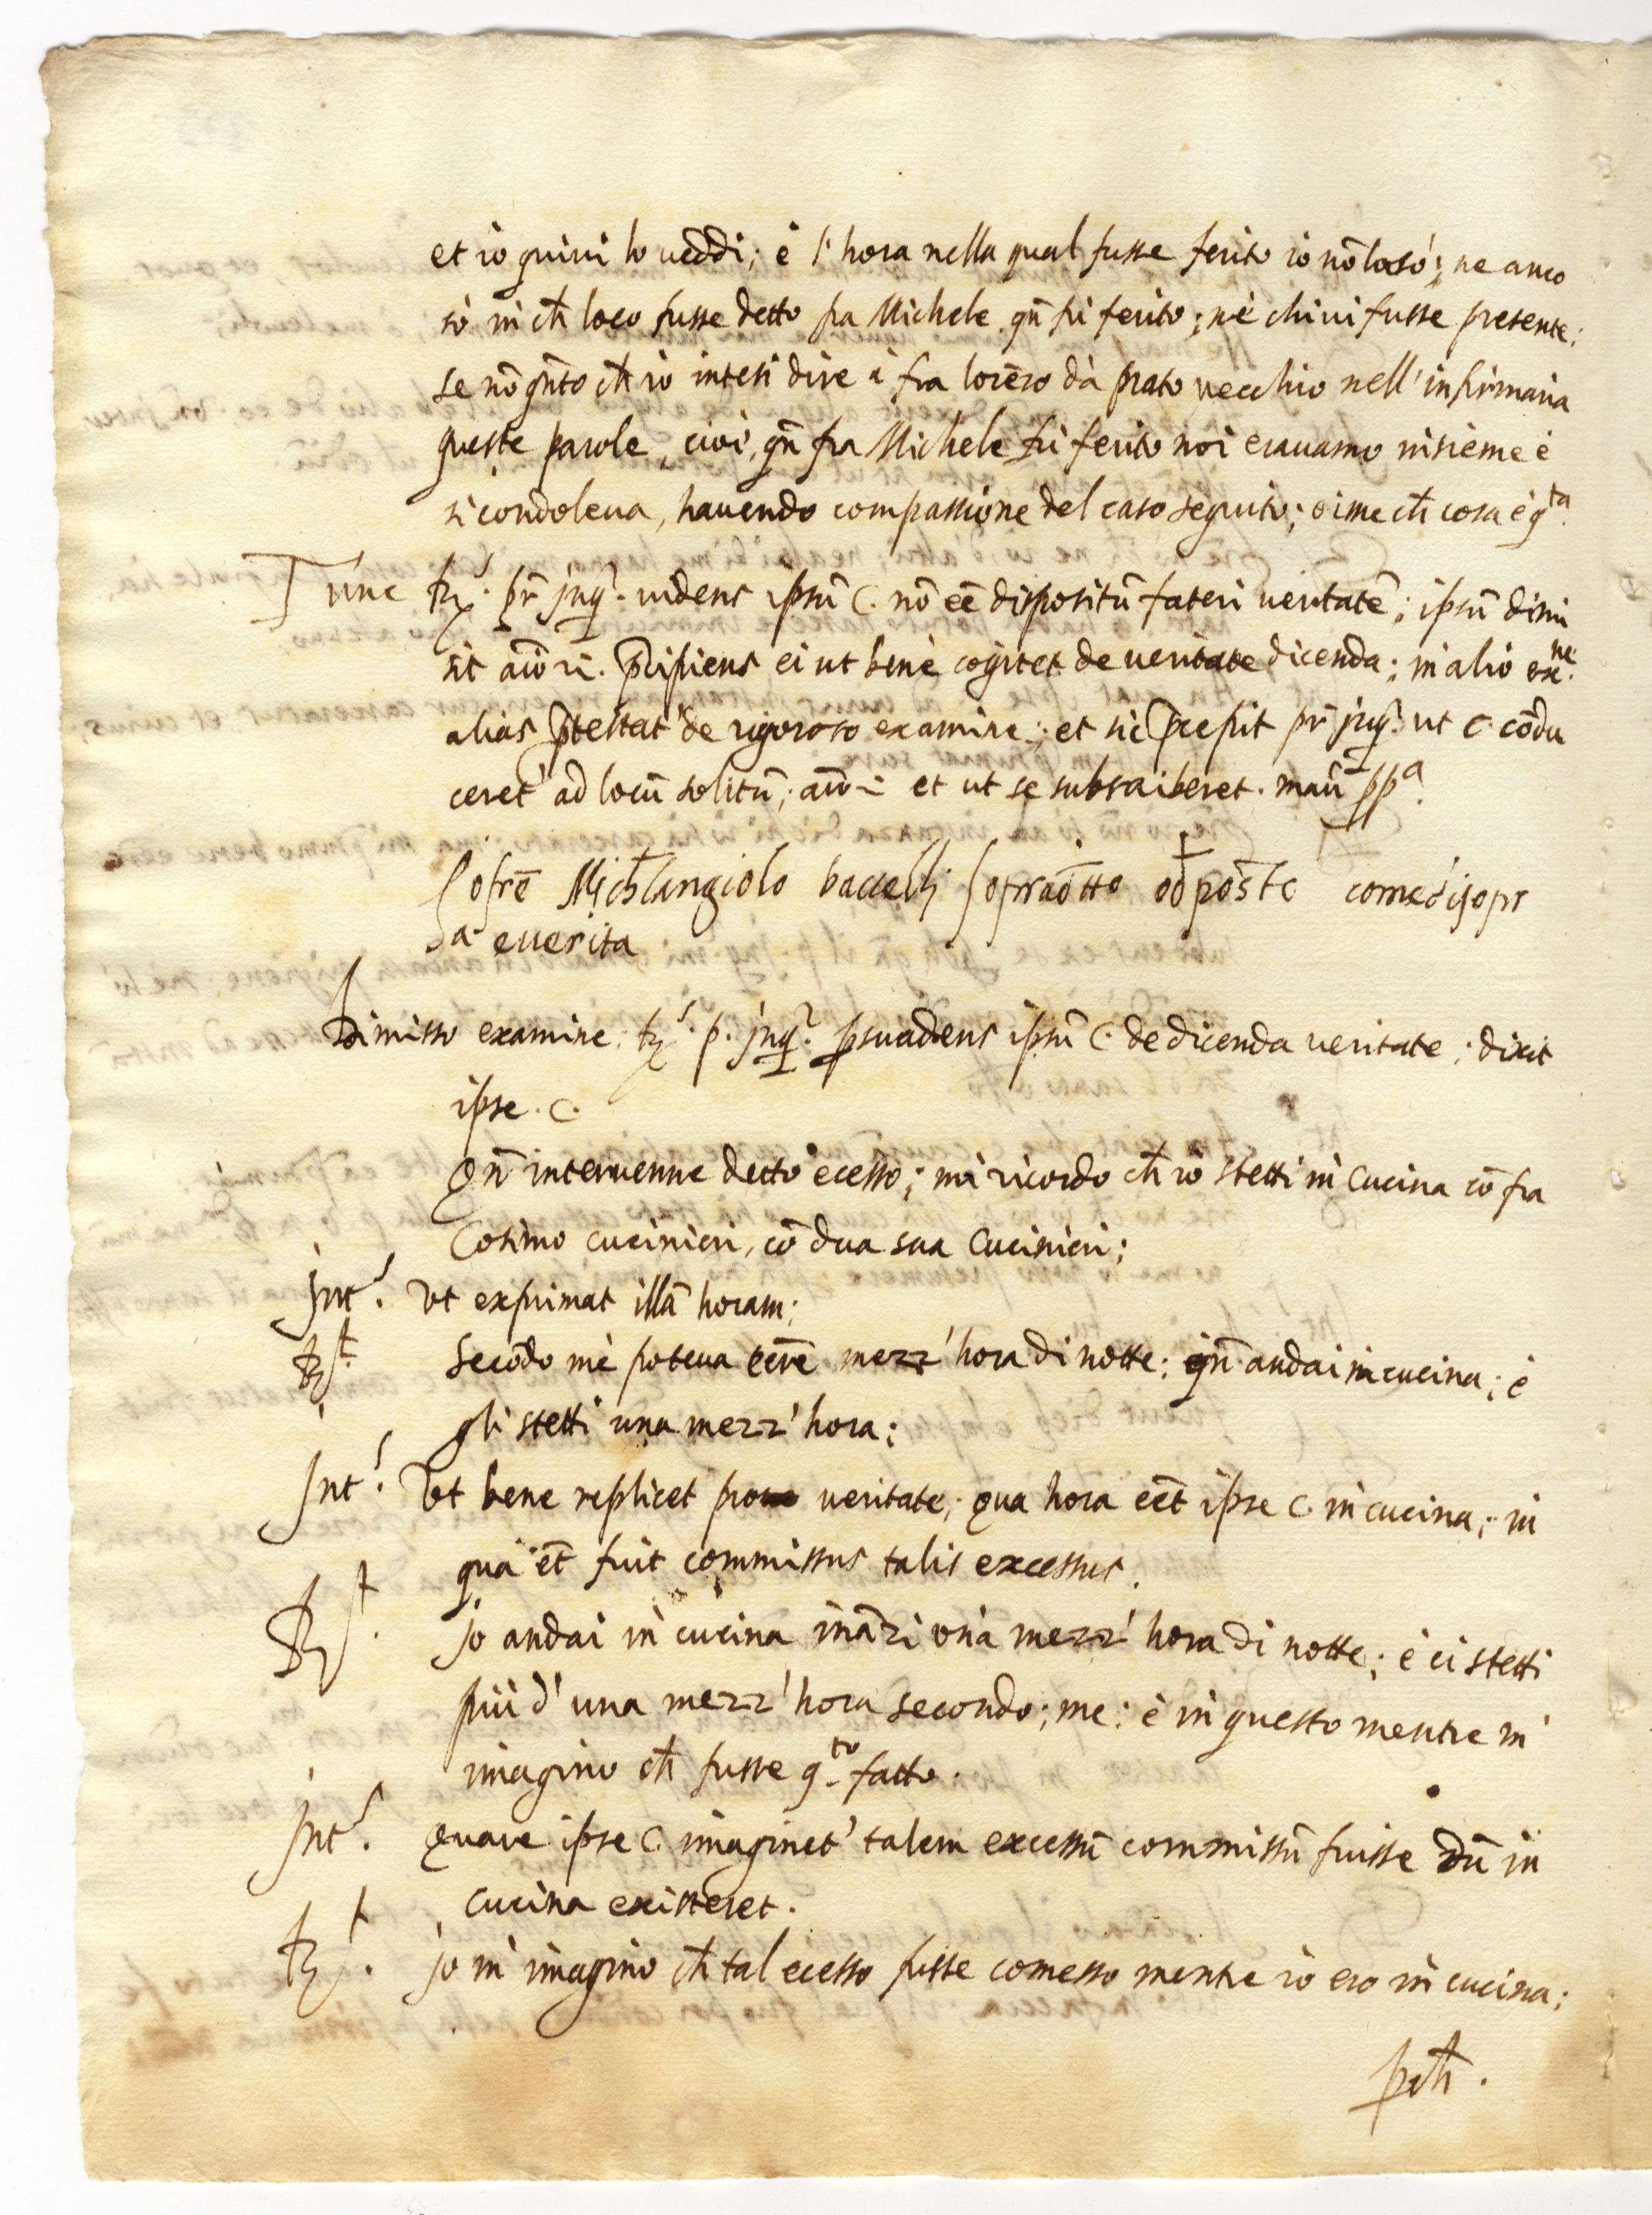 et io quivi lo veddi; è l'hora nella qual fusse ferito io nō lo sò; ne anco
sò in ch̄ loco fusse detto fra Michele qn̄ fù ferito; nè chi vi fusse presente;
se nō qn̄to ch̄ io intesi dire à fra lorēzo dà prato vecchio nell'infirmaria
queste parole, cioè, qn̄ fra Michele fù ferito noi eravamo insieme è
si condoleva, havendo compassione del caso seguito; oime ch̄ cosa è q.ta
Tunc R.s pr̄ Inq.r videns ipsū C. nō eē dispositū fateri veritatē; ipsū dimi
sit p̄cipiens ei ut benè cogitet de veritate dicenda; in alio ex.ne
alias p̄testat' de rigoroso examine; et sic p̄cepit pr̄ Inq.r ut C. cōdu
ceret' ad locū solitū; et ut se subscriberet. manū pp.a
Io frē Mich̄langiolo baccelli sopradtto ò dposto come di sopr
a è verita
Dimisso examine R.s p. Inq.r p̄suadens ipsū C. de dicenda veritate; dixit
ipse. C.
Qn̄ intervenne detto ecesso; mi ricordo ch̄ io stetti in Cucina cō fra
Cosimo cucinieri, cō dua sua Cucinieri;
Int.s Ut exprimat illā horam;
R.t Secōdo mè poteva eērē mezz'hora di notte; qn̄ andai in cucina; è
gli stetti una mezz'hora;
Int.s Ut bene replicet pro veritate; qua hora eēt ipse C. in cucina; in
qua ēt fuit commissus talis excessus.
R.t Io andai in cucina ināzi una mezz'hora di notte; è ci stetti
più d'una mezz'hora secondo; me: è in questo mentre m'
imagino ch̄ fusse q.to fatto.
Int.s Quare ipse C. imaginet' talem excessū commissū fuisse dū in
cucina existeret.
R.t Io m'imagino ch̄ tal ecesso fusse comesso mentre io ero in cucina;
p̄ch̄.